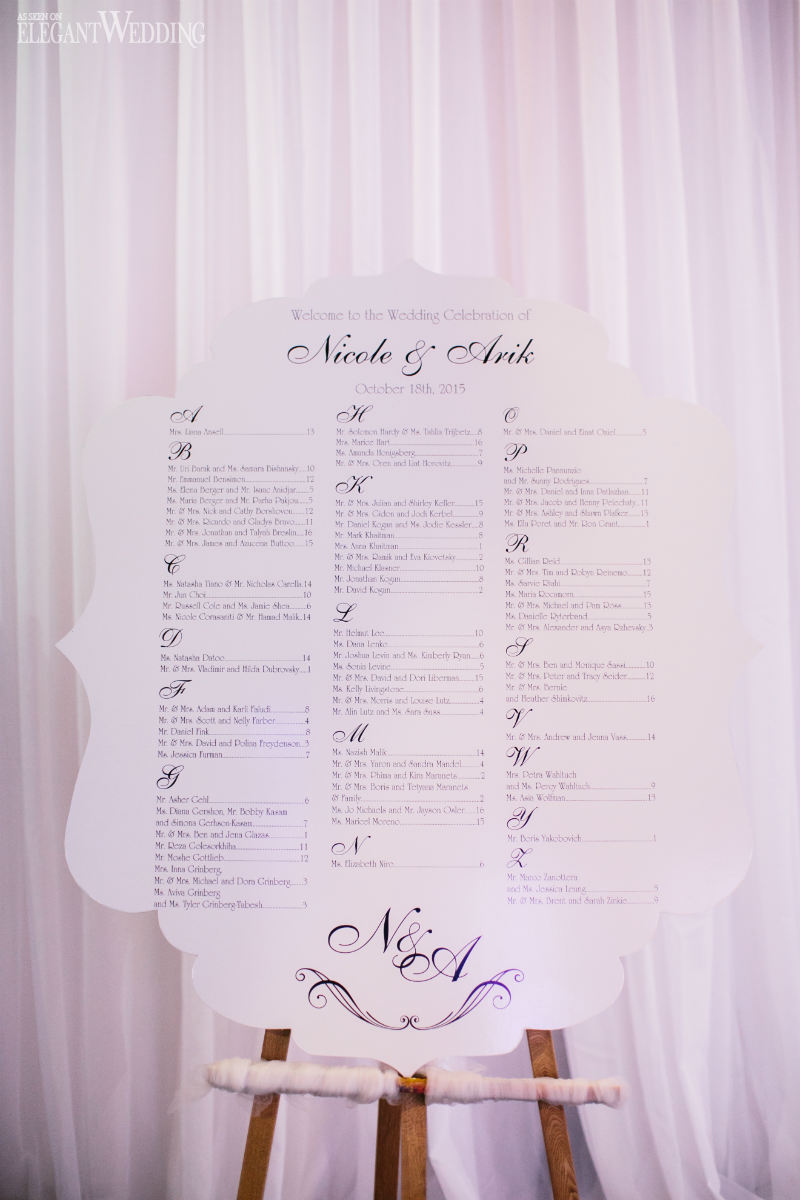 AS SEEN ON
ELEGANTWEDDING
Welcome to the Wedding Celebration of
Nicole & Arik
October 18th, 2015
A
Mrs. Liana Ansell 13
B
Mr. Uri Barak and Ms. Samara Bishansky 10
Mr. Emmanuel Bensimon 12
Ms. Elena Berger and Mr. Isaac Anidjar 5
Ms. Maria Berger and Mr. Parha Pakjou 5
Mr. & Mrs. Nick and Cathy Bershoven 12
Mr. & Mrs. Ricardo and Gladys Bravo 11
Mr. & Mrs. Jonathan and Talyah Breslin 16
Mr. & Mrs. James and Azucena Buttoo 15
C
Ms. Natasha Tiano & Mr. Nicholas Carella 14
Mr. Jun Choi 10
Mr. Russell Cole and Ms. Jamie Shea 6
Ms. Nicole Corasaniti & Mr. Hamad Malik 14
D
Ms. Natasha Datoo 14
Mr. & Mrs. Vladimir and Hilda Dubrovsky 1
F
Mr. & Mrs. Adam and Karli Faludi 8
Mr. & Mrs. Scott and Nelly Farber 4
Mr. Daniel Fink 8
Mr. & Mrs. David and Polina Freydenson 3
Ms. Jessica Furman 7
G
Mr. Asher Gehl 6
Ms. Diana Gershon, Mr. Bobby Kasam
and Simona Gerhson-Kasam 7
Mr. & Mrs. Ben and Jena Glazas 1
Mr. Reza Golesorkhiha 11
Mr. Moshe Gottlieb 12
Mrs. Inna Grinberg,
Mr. & Mrs. Michael and Dora Grinberg 3
Ms. Aviva Grinberg
and Ms. Tyler Grinberg-Tabesh 3
H
Mr. Solomon Hardy & Ms. Tahlia Trijbetz 8
Mrs. Marice Hart 16
Ms. Amanda Honigsberg 7
Mr. & Mrs. Oren and Liat Horovitz 9
K
Mr. & Mrs. Julian and Shirley Keller 15
Mr. & Mrs. Gidon and Jodi Kerbel 9
Mr. Daniel Kogan and Ms. Jodie Kessler 8
Mr. Mark Khaitman 8
Mrs. Anna Khaitman 1
Mr. & Mrs. Ramik and Eva Kiovetsky 2
Mr. Michael Klasner 10
Mr. Jonathan Kogan 8
Mr. David Kogan 2
L
Mr. Helmut Lee 10
Ms. Dana Lenko 6
Mr. Joshua Levin and Ms. Kimberly Ryan 6
Ms. Sonia Levine 5
Mr. & Mrs. David and Dori Liberman 15
Ms. Kelly Livingstone 6
Mr. & Mrs. Morris and Louise Lutz 4
Mr. Alin Lutz and Ms. Sara Suss 4
M
Ms. Nazish Malik 14
Mr. & Mrs. Yaron and Sandra Mandel 4
Mr. & Mrs. Phima and Kira Maranets 2
Mr. & Mrs. Boris and Tetyana Maranets
& Family 2
Ms. Jo Michaels and Mr. Jayson Osler 16
Ms. Maricel Moreno 15
N
Ms. Elizabeth Niro 6
O
Mr. & Mrs. Daniel and Einat Oziel 5
P
Ms. Michelle Pannunzio
and Mr. Sunny Rodrigues 7
Mr. & Mrs. Daniel and Inna Patlazhan 11
Mr. & Mrs. Jacob and Henny Pelechaty 11
Mr. & Mrs. Ashley and Shawn Plafker 13
Ms. Ella Poret and Mr. Ron Grant 1
R
Ms. Gillian Reid 13
Mr. & Mrs. Tim and Robyn Reinemo 12
Ms. Sarvie Riahi 7
Ms. Maria Rocamora 15
Mr. & Mrs. Michael and Pam Ross 13
Ms. Danielle Ryterband 5
Mr. & Mrs. Alexander and Asya Rahevsky 3
S
Mr. & Mrs. Ben and Monique Sassi 10
Mr. & Mrs. Peter and Tracy Seider 12
Mr. & Mrs. Bernie
and Heather Shimkovitz 16
V
Mr. & Mrs. Andrew and Jenna Vass 14
W
Mrs. Petra Wahltuch
and Ms. Percy Wahltuch 9
Ms. Asia Wolfman 13
Y
Mr. Boris Yakobovich 1
Z
Mr. Marco Zanottera
and Ms. Jessica Leung 5
Mr. & Mrs. Brent and Sarah Zinkie 9
N&A